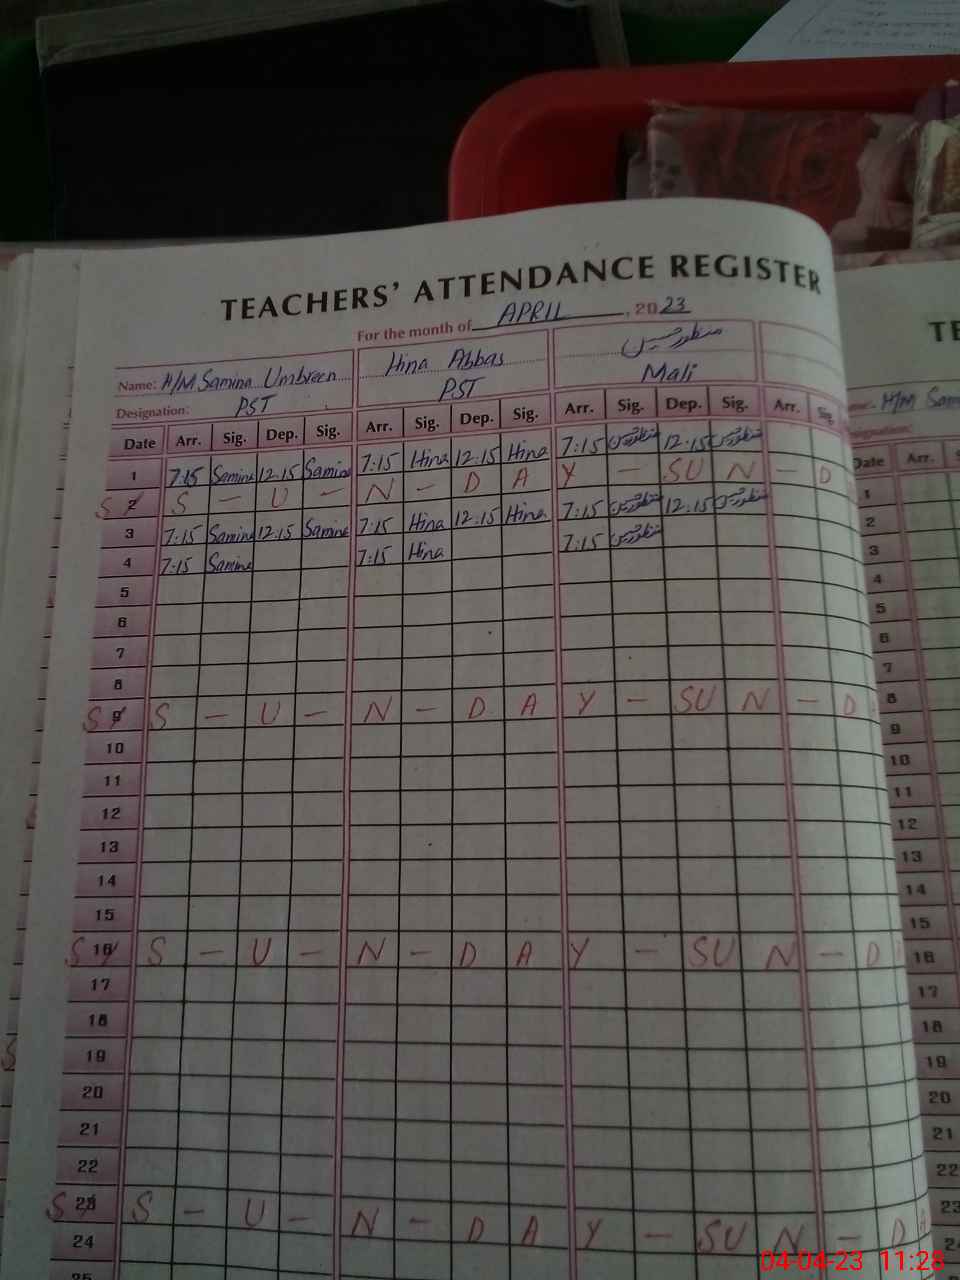 TEACHERS' ATTENDANCE REGISTER
For the month of APRIL, 2023
Name: H/M Samina Umbreen Hina Abbas منظور حسین
Designation: PST PST Mali
Date Arr. Sig. Dep. Sig. Arr. Sig. Dep. Sig. Arr. Sig. Dep. Sig. Arr. Sig
1 7:15 Samina 12:15 Samina 7:15 Hina 12:15 Hina 7:15 منظور حسین 12:15 منظور حسین
S 2 S - U - N - D A Y - SU N - D
3 7:15 Samina 12:15 Samina 7:15 Hina 12:15 Hina 7:15 منظور حسین 12:15 منظور حسین
4 7:15 Samina 7:15 Hina 7:15 منظور حسین
5
6
7
8
S 9 S - U - N - D A Y - SU N - D
10
11
12
13
14
15
S 16 S - U - N - D A Y - SU N - D
17
18
19
20
21
22
S 23 S - U - N - D A Y - SU N - D
24
25
TE
H/M Sam
Date Arr.
1
2
3
4
5
6
7
8
9
10
11
12
13
14
15
16
17
18
19
20
21
22
23
24
04-04-23 11:28